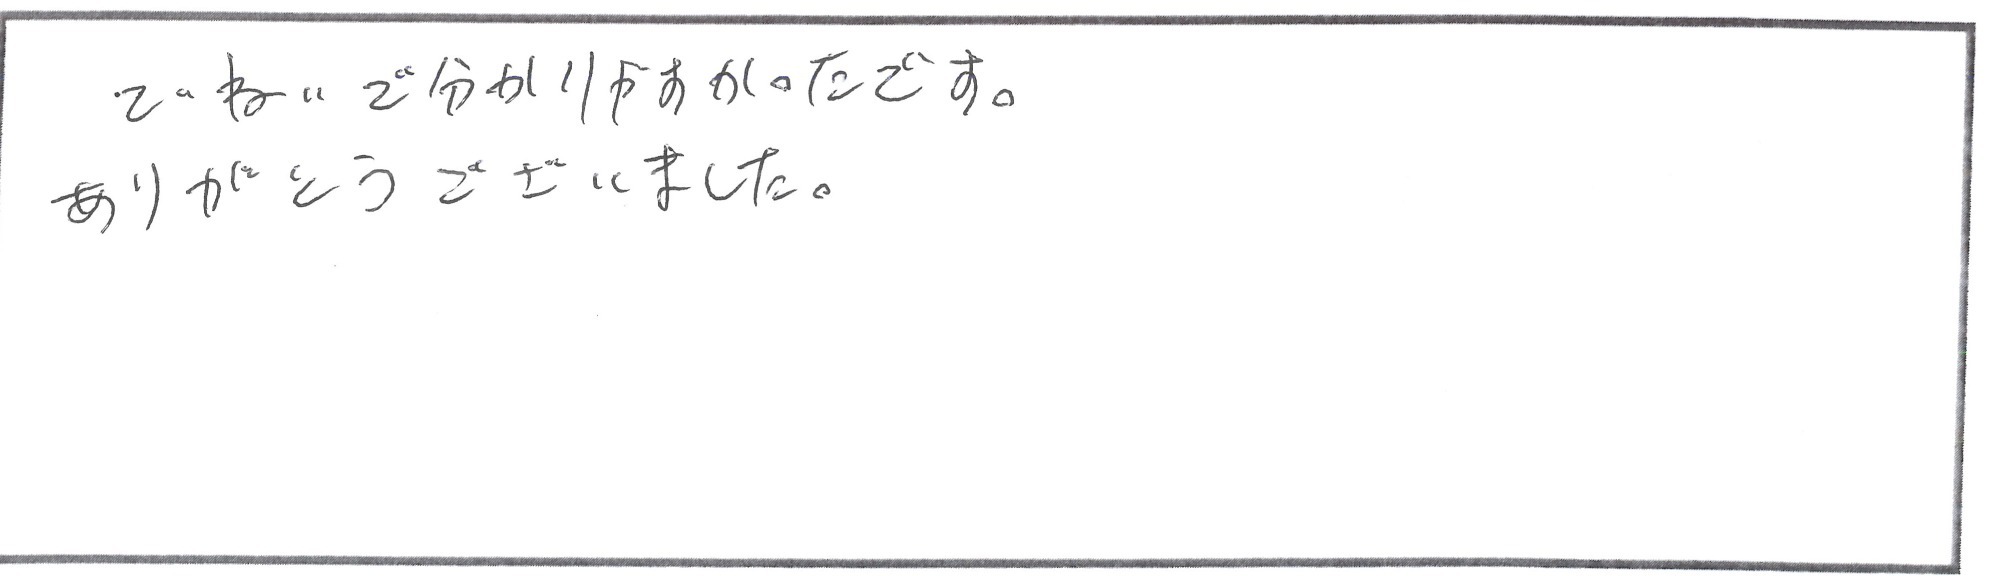 ていねいで分かりやすかったです。
ありがとうございました。